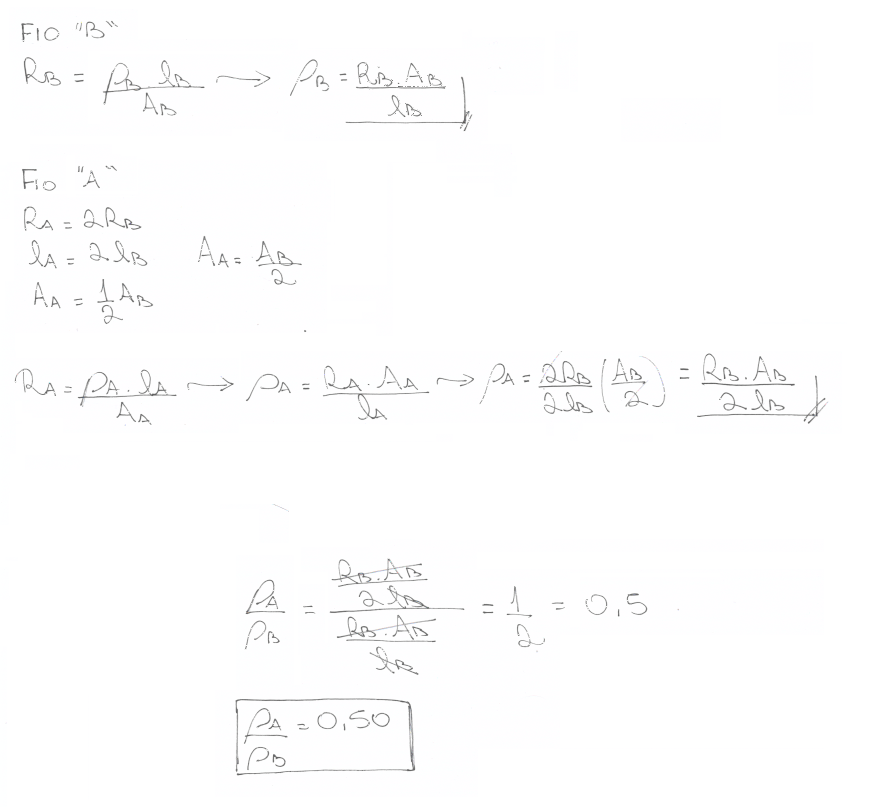 FIO "B"
RB = ρB lB / AB → ρB = RB . AB / lB
FIO "A"
RA = 2RB
lA = 2lB AA = AB / 2
AA = 1/2 AB
RA = ρA . lA / AA → ρA = RA . AA / lA → ρA = 2RB / 2lB (AB / 2) = RB . AB / 2lB
ρA / ρB = (RB . AB / 2lB) / (RB . AB / lB) = 1/2 = 0,5
ρA / ρB = 0,50